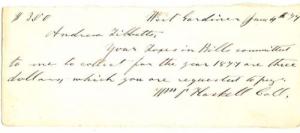 $ 3.00 West Gardiner Jan 4th 77
Andrew Tibbetts,
Your Taxes in Bills committed
to me to collect for the year 1877 are three
dollars, which you are requested to pay.
Wm P Haskell Coll.